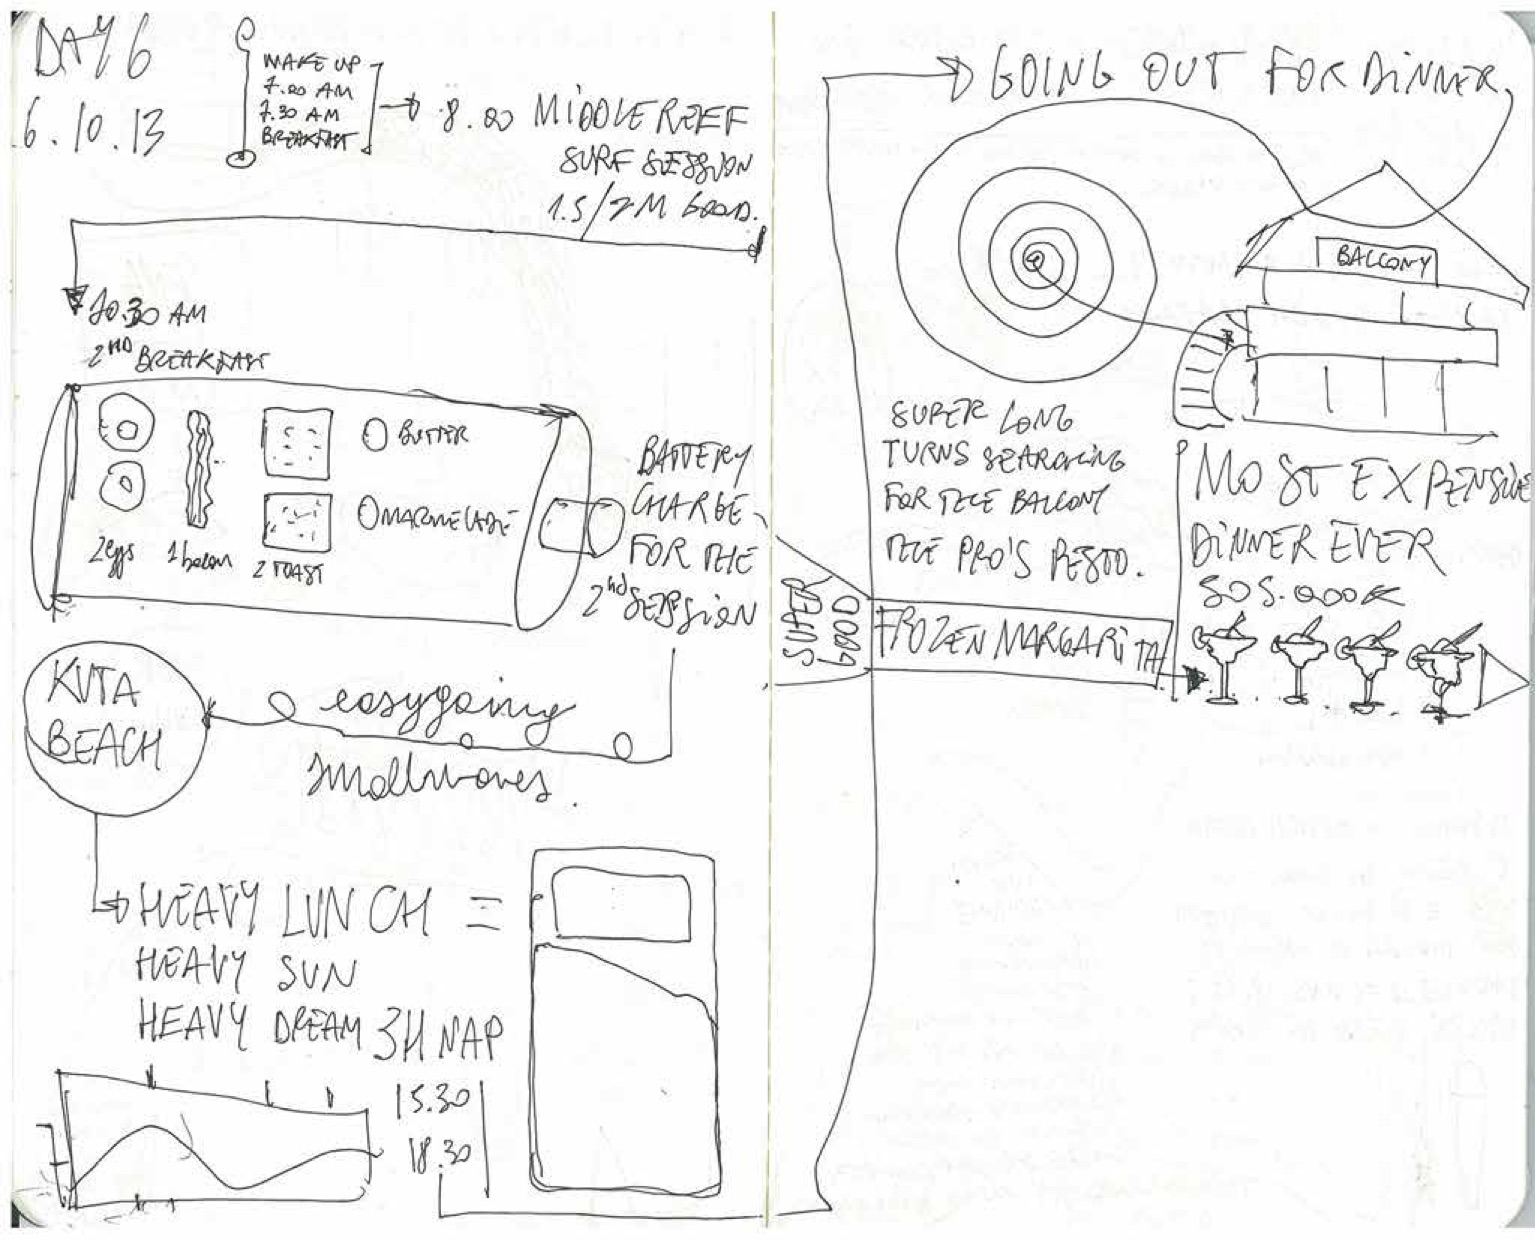 DAY 6
6.10.13
MAKE UP
7.00 AM
7.30 AM
BREAKFAST
8.00 MIDDLE REEF
SURF SESSION
1.5/2M GOOD.
10.30 AM
2ND BREAKFAST
BUTTER
MARMELADE
2 egs
1 bacon
2 TOAST
BATTERY
CHARGE
FOR THE
2nd SESSION
KUTA
BEACH
easygoing
smallwaves.
HEAVY LUNCH =
HEAVY SUN
HEAVY DREAM 3H NAP
15.30
18.30
GOING OUT FOR DINNER
BALCONY
SUPER LONG
TURNS SEARCHING
FOR THE BALCONY
THE PRO'S RESTO.
MOST EXPENSIVE
DINNER EVER
505.000K
SUPER
GOOD
FROZEN MARGARITA